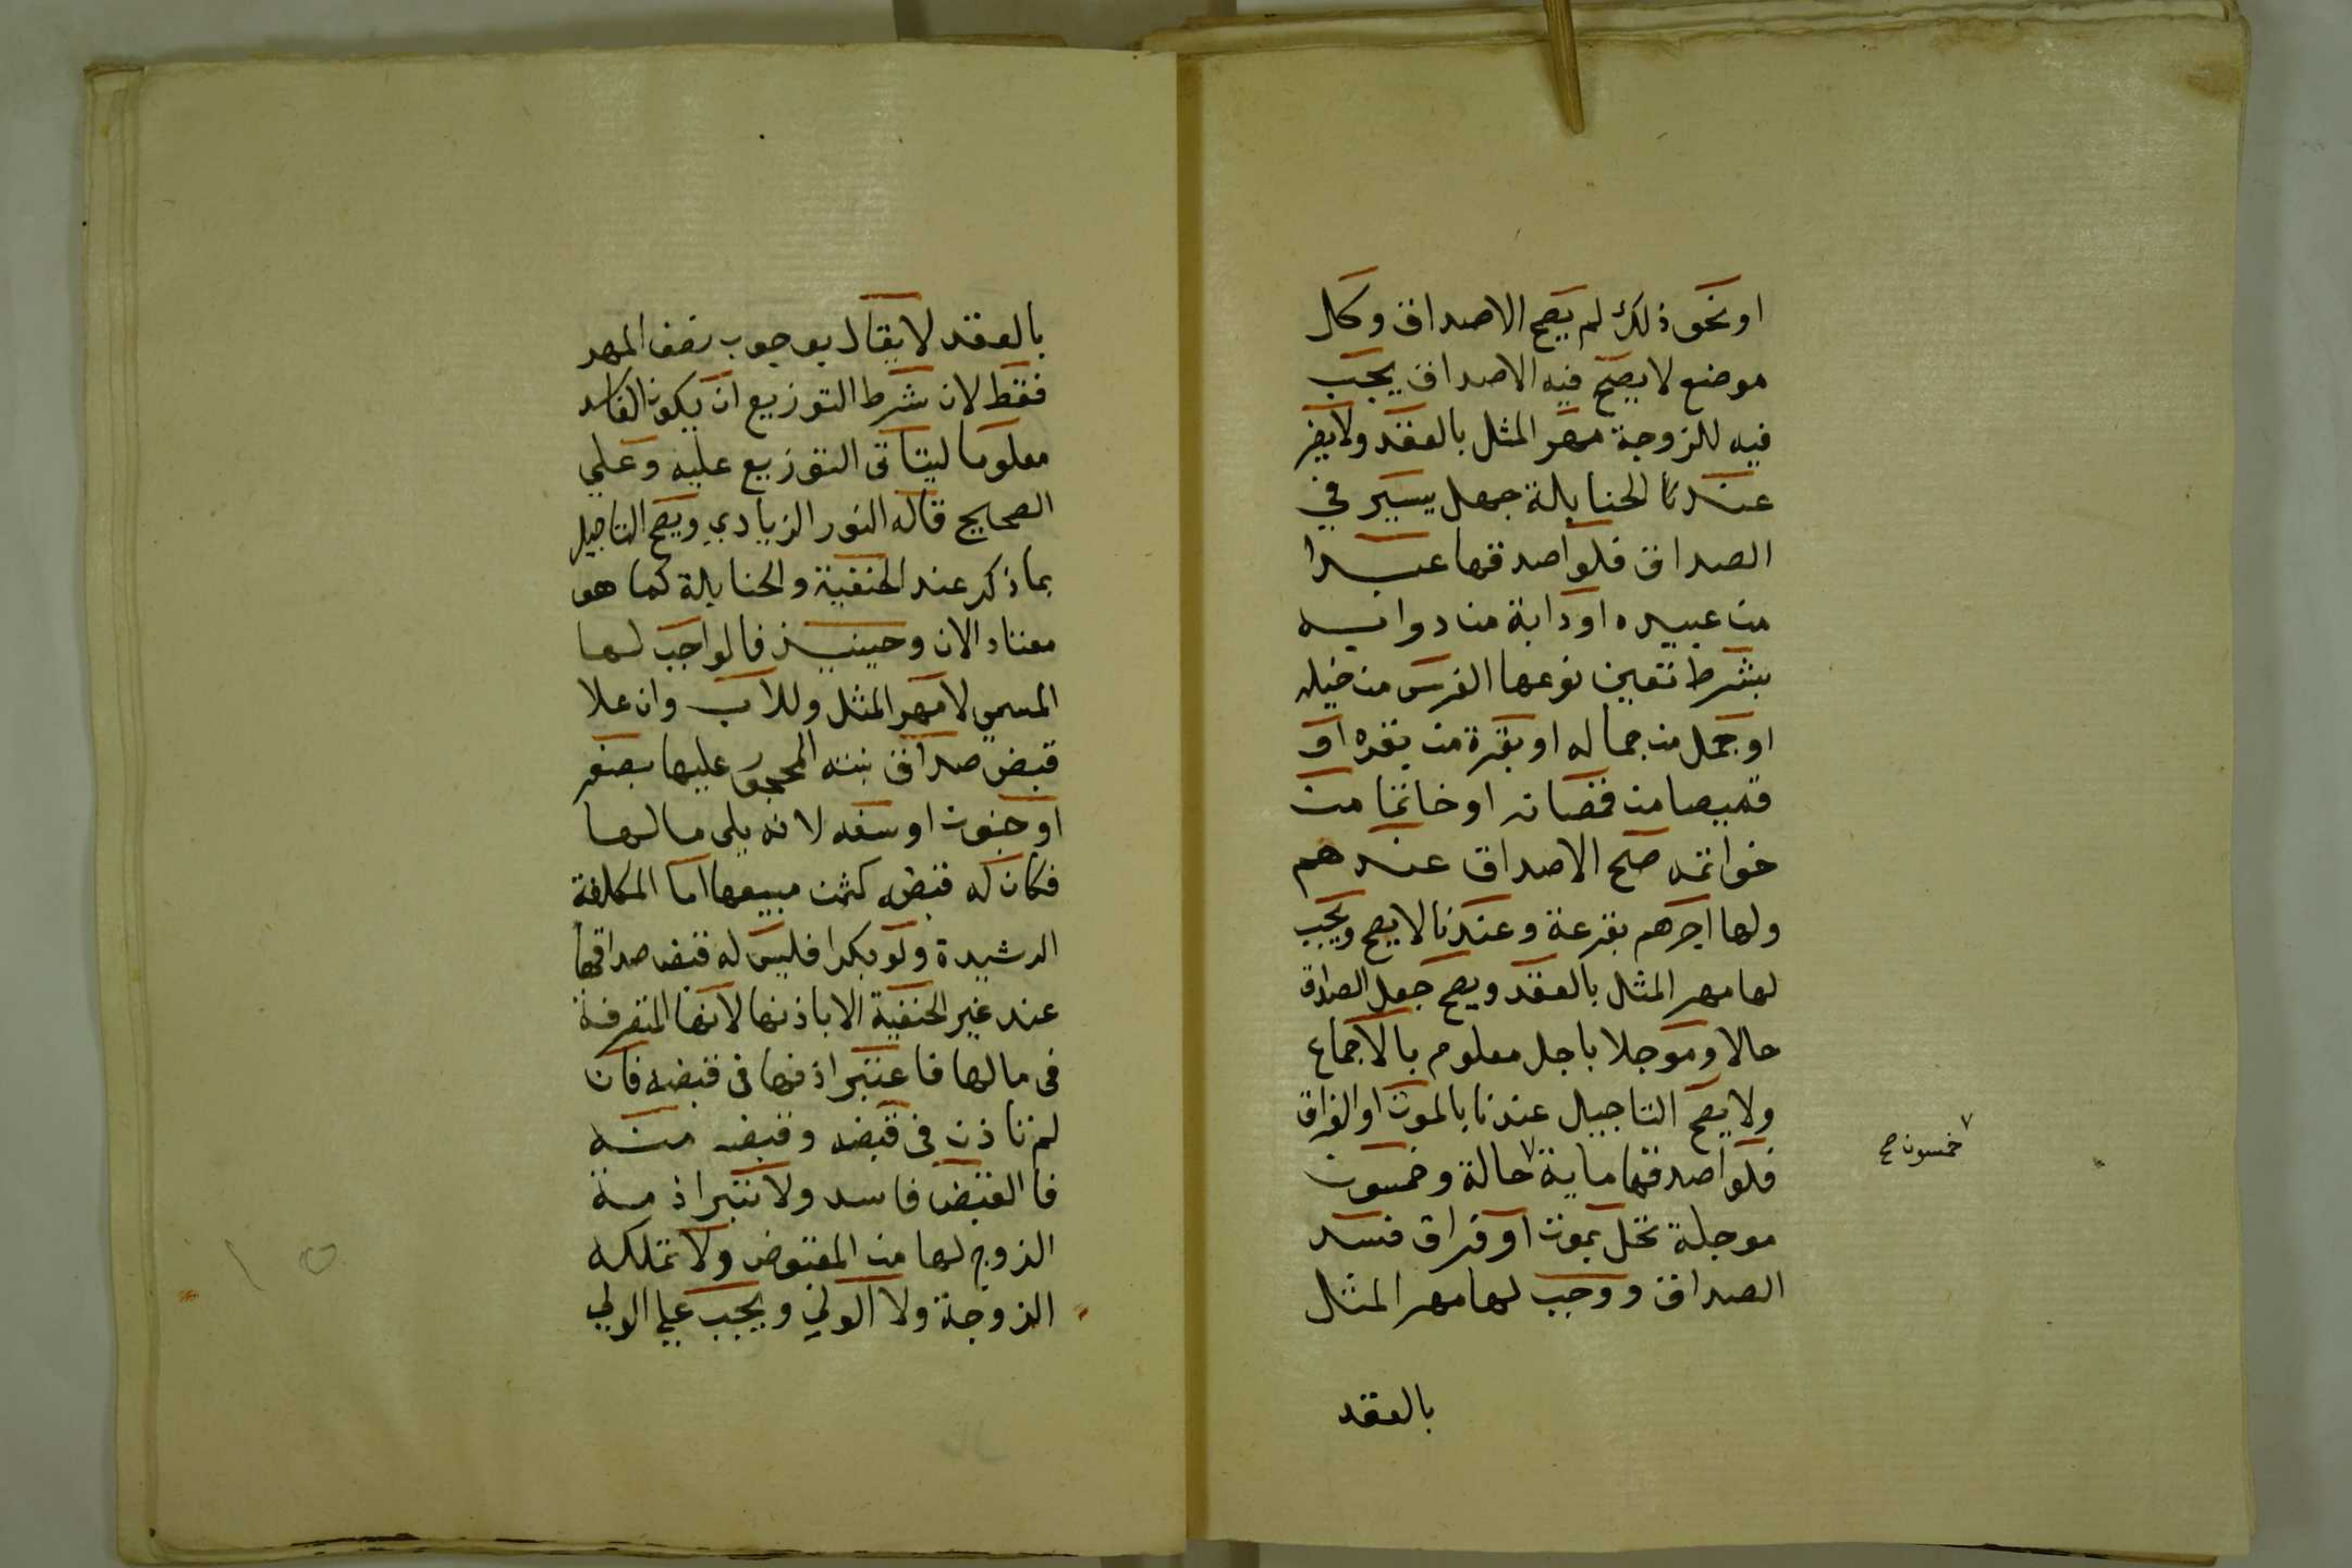 او نحو ذلك لم يصح الاصداق وكل
موضع لا يصح فيه الاصداق يجب
فيه للزوجة مهر المثل بالعقد ولا يضر
عند الحنابلة جهل يسير في
الصداق فلو اصدقها عبدا
من عبيده او دابة من دوابه
بشرط تعين نوعها الفرس من خيله
او جمل من جماله او بقرة من بقره او
قميصا من قمصانه او خاتما من
خواتمه صح الاصداق عندهم
ولها احدهم بقرعة وعندنا لا يصح ويجب
لها مهر المثل بالعقد ويصح جعل الصداق
حالا وموجلا باجل معلوم بالاجماع
ولا يصح التاجيل عندنا بالموت او الفراق
فلو اصدقها ماية حالة وخمسون
خمسون صح
موجلة تحل بموت او فراق فسد
الصداق ووجب لها مهر المثل
بالعقد
بالعقد لا يقال بوجوب نصف المهر
فقط لان شرط التوزيع ان يكون الفاسد
معلوما ليتاتى التوزيع عليه وعلي
الصحيح قاله النور الزيادي ويصح التاجيل
بما ذكر عند الحنفية والحنابلة كما هو
معتاد الان وحينيذ فالواجب لها
المسمي لا مهر المثل وللاب وان علا
قبض صداق بنته المحجور عليها بصغر
او جنون او سفه لانه يلي مالها
فكان له قبضه كثمن مبيعها اما المكلفة
الرشيدة ولو بكرا فليس له قبض صداقها
عند غير الحنفية الا باذنها لانها المتصرفة
في مالها فاعتبر اذنها في قبضه فان
لم تاذن في قبضه وقبضه منه
فالقبض فاسد ولا تبرا ذمة
الزوج لها من المقبوض ولا تملكه
الزوجة ولا الولي ويجب علي الولي